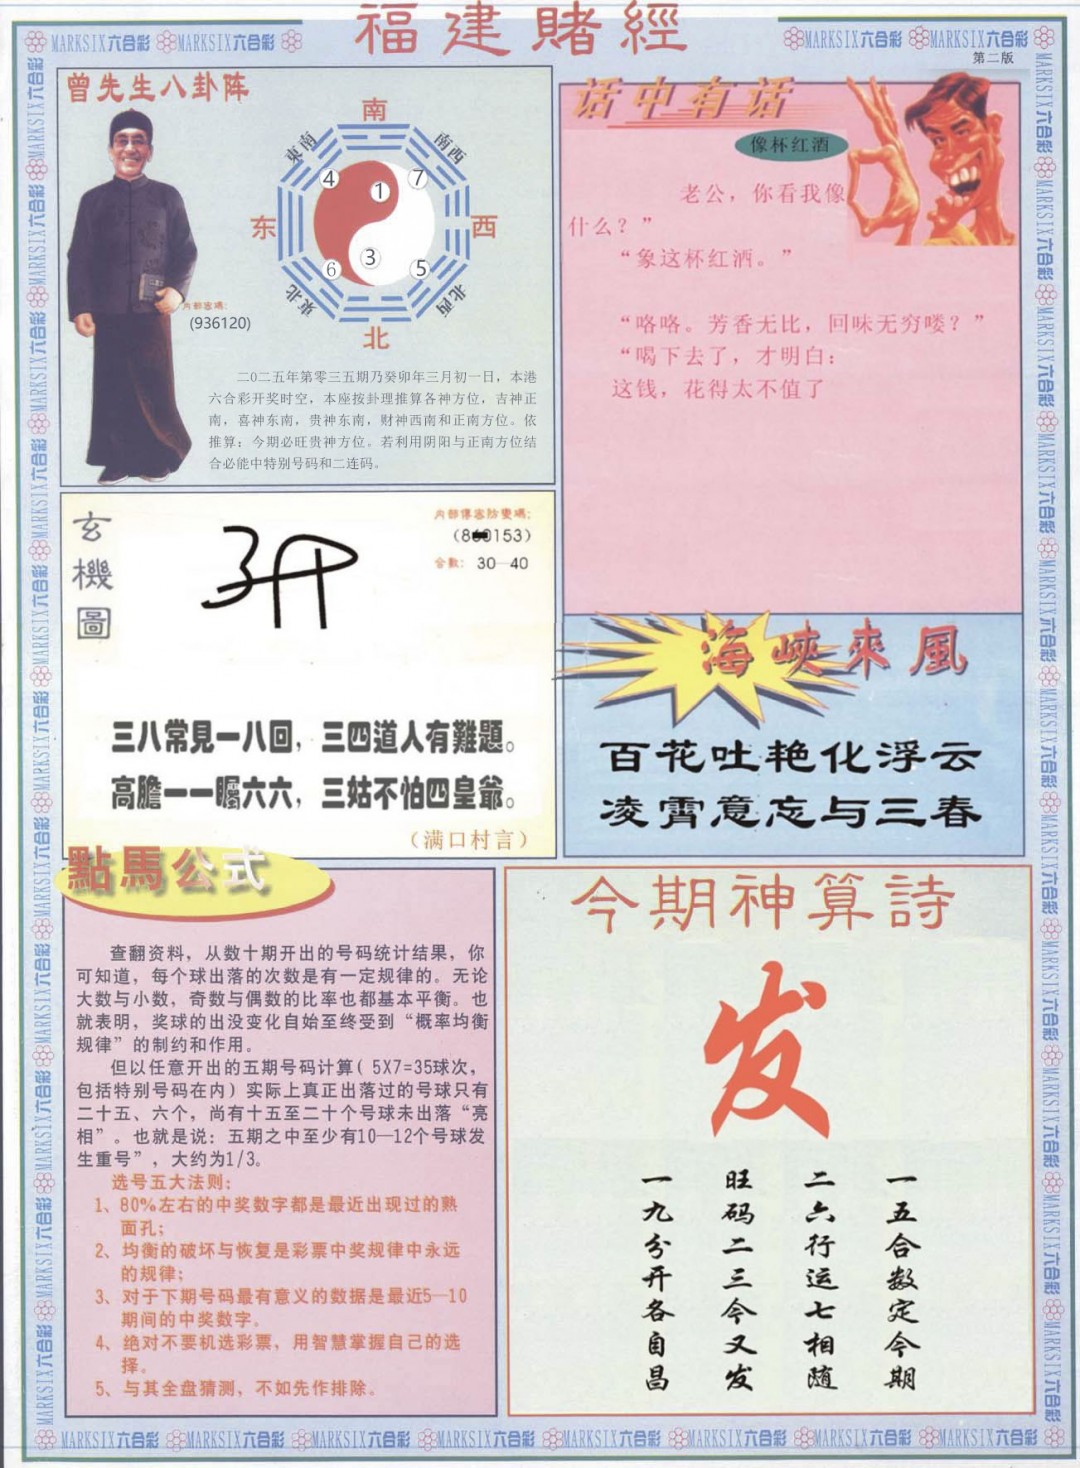 福建賭經
MARKSIX六合彩 MARKSIX六合彩
MARKSIX六合彩 MARKSIX六合彩
第二版
曾先生八卦阵
南
東南
南西
4
1
7
东
西
6
3
5
東北
北西
北
内部密碼:
(936120)
二〇二五年第零三五期乃癸卯年三月初一日，本港
六合彩开奖时空，本座按卦理推算各神方位，吉神正
南，喜神东南，贵神东南，财神西南和正南方位。依
推算：今期必旺贵神方位。若利用阴阳与正南方位结
合必能中特别号码和二连码。
话中有话
像杯红酒
老公，你看我像
什么？”
“象这杯红酒。”
“咯咯。芳香无比，回味无穷喽？”
“喝下去了，才明白：
这钱，花得太不值了
玄機圖
内部傳密防變碼:
0153)
合數: 30—40
三八常見一八回，三四道人有難題。
高膽一一矚六六，三姑不怕四皇爺。
（满口村言）
海峽來風
百花吐艳化浮云
凌霄意忘与三春
點馬公式
查翻资料，从数十期开出的号码统计结果，你
可知道，每个球出落的次数是有一定规律的。无论
大数与小数，奇数与偶数的比率也都基本平衡。也
就表明，奖球的出没变化自始至终受到“概率均衡
规律”的制约和作用。
但以任意开出的五期号码计算( 5X7=35球次，
包括特别号码在内）实际上真正出落过的号球只有
二十五、六个，尚有十五至二十个号球未出落“亮
相”。也就是说：五期之中至少有10—12个号球发
生重号”，大约为1/3。
选号五大法则：
1、80%左右的中奖数字都是最近出现过的熟
面孔；
2、均衡的破坏与恢复是彩票中奖规律中永远
的规律；
3、对于下期号码最有意义的数据是最近5—10
期间的中奖数字。
4、绝对不要机选彩票，用智慧掌握自己的选
择。
5、与其全盘猜测，不如先作排除。
今期神算詩
发
一五合数定今期
二六行运七相随
旺码二三今又发
一九分开各自昌
MARKSIX六合彩 MARKSIX六合彩 MARKSIX六合彩 MARKSIX六合彩 MARKSIX六合彩 MARKSIX六合彩 MARKSIX六合彩 MARKSIX六合彩